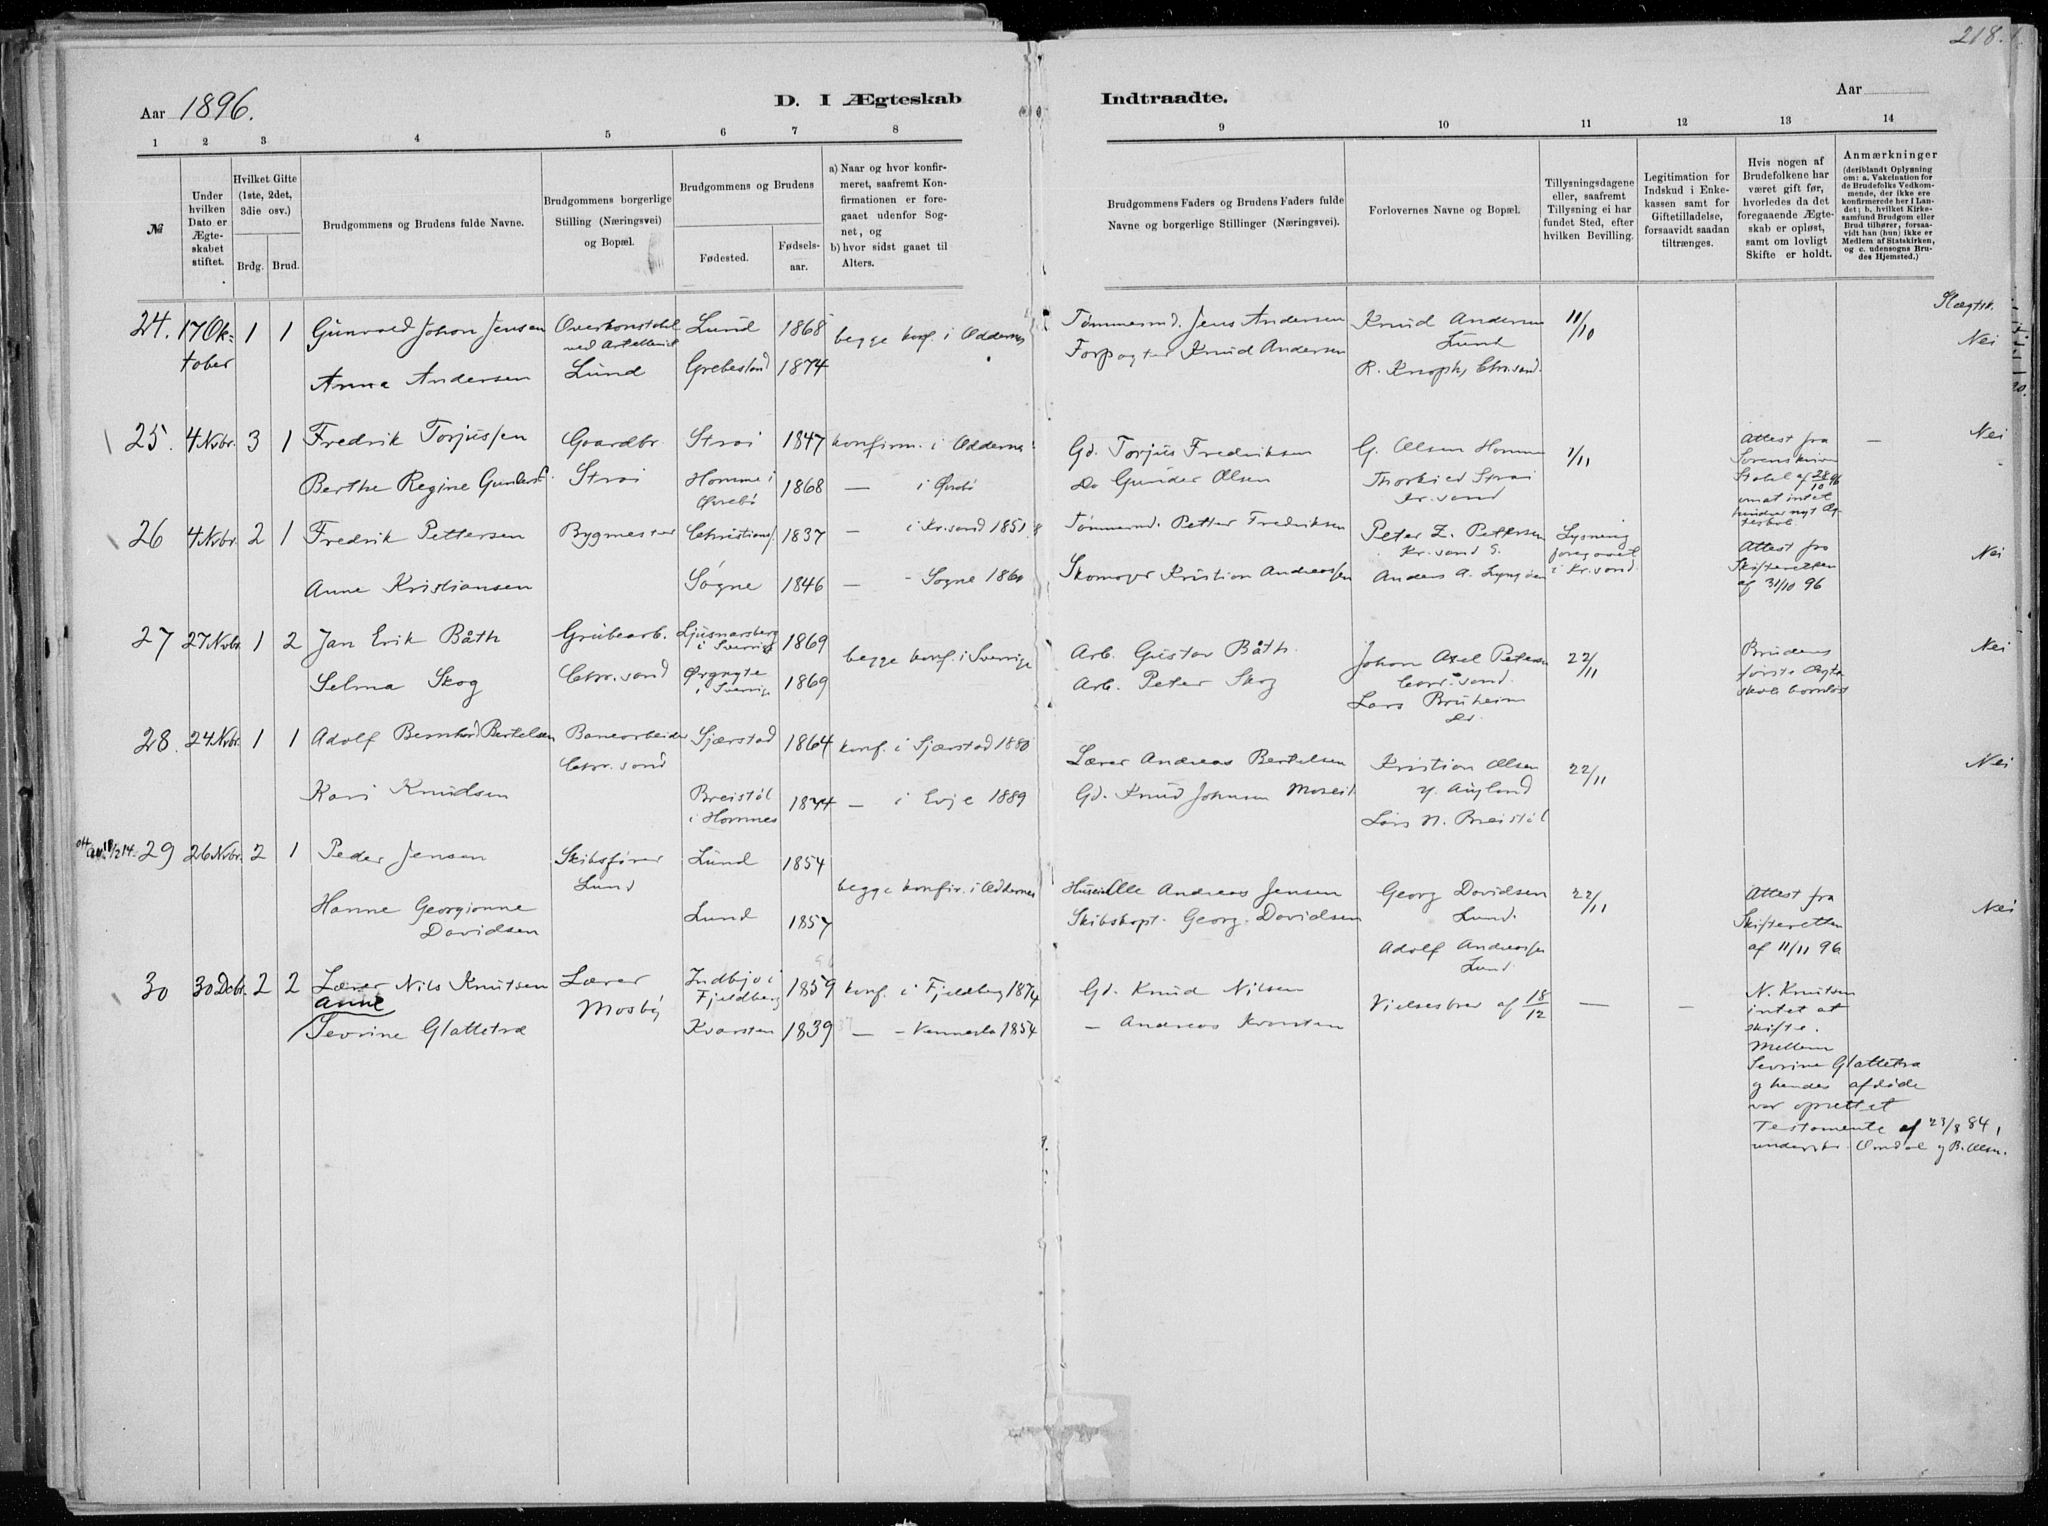 218.
Aar 1896.
D. I Ægteskab Indtraadte.
Aar
1 2 3 4 5 6 7 8 9 10 11 12 13 14
№
Under hvilken Dato er Ægteskabet stiftet.
Hvilket Gifte (1ste, 2det, 3die osv.)
Brdg. Brud.
Brudgommens og Brudens fulde Navne.
Brudgommens borgerlige Stilling (Næringsvei) og Bopæl.
Brudgommens og Brudens
Fødested.
Fødselsaar.
a) Naar og hvor konfirmeret, saafremt Konfirmationen er foregaaet udenfor Sognet, og
b) hvor sidst gaaet til Alters.
Brudgommens Faders og Brudens Faders fulde Navne og borgerlige Stillinger (Næringsvei).
Forlovernes Navne og Bopæl.
Tillysningsdagene eller, saafremt Tillysning ei har fundet Sted, efter hvilken Bevilling.
Legitimation for Indskud i Enkekassen samt for Giftetilladelse, forsaavidt saadan tiltrænges.
Hvis nogen af Brudefolkene har været gift før, hvorledes da det foregaaende Ægteskab er opløst, samt om lovligt Skifte er holdt.
Anmærkninger (deriblandt Oplysning om: a. Vakcination for de Brudefolks Vedkommende, der ikke ere konfirmerede her i Landet; b. hvilket Kirkesamfund Brudgom eller Brud tilhører, forsaavidt han (hun) ikke er Medlem af Statskirken, og c. udensogns Brudes Hjemsted.)
Slægtsk.
24. 17 Oktober 1 1 Gunvald Johan Jensen Overkonstabel ved Artilleriet Lund 1868 begge konf. i Oddernes Tømmermd. Jens Andersen Knud Andersen Lund 11/10 Nei
Anna Andersen Lund Grebestad 1874 Forpagter Knud Andersen R. Knoph, Chr.sand.
25. 4 Nvbr. 3 1 Fredrik Torjussen Gaardbr. Strai 1847 konfirm. i Oddernes Gd. Torjus Fredriksen G. Olsen Homme 1/11 Attest fra Sorenskriver Stabel af 28/10 96 om at intet hindrer nyt Ægteskab — Nei
Berthe Regine Gunders. Strai Homme i Øvrebø 1868 — i Øvrebø Do Gunder Olsen Strai Kr.sand
26 4 Nvbr. 2 1 Fredrik Pettersen Bygmester Christians/ 1837 — i Kr.sand 1851 Tømmermd. Petter Fredriksen Peter Z. Pettersen Kr.sand S. Lysning foregaaet i Kr.sand. Attest fra Skifteretten af 31/10 96 Nei
Anne Kristiansen Søgne 1846 — - Søgne 1860 Skomager Kristian Andreassen Anders A.
27 27 Nvbr. 1 2 Jan Erik Båth Grubearb. Ljusnarsberg i Sverrige 1869 begge konf. i Sverrige Arb. Gustav Båth. Johan Axel Petersen Chr.sand. 22/11 Brudens første Ægteskab barnløst Nei
Selma Skog Chr.sand i Sverrige 1869 Arb. Peter Skog Lars Bruheim Do.
28. 24 Nvbr. 1 1 Adolf Bernhard Bertelsen Banearbeider Chr.sand Sjærstad 1864 konf. i Sjærstad 1880 Lærer Andreas Bertelsen Kristian Olsen y. Augland 22/11 Nei
Kari Knudsen Breistøl i Hornnes 1874 — i Evje 1889 Gd. Knud Johnsen Lars N. Breistøl
29 26 Nvbr. 2 1 Peder Jensen Skibsfører Lund Lund 1854 begge konfir. i Oddernes Ole Andreas Jensen Georg Davidsen Lund. 22/11 Attest fra Skifteretten af 11/11 96 Nei
Hanne Georgianne Davidsen Lund 1857 Skibskapt. Georg Davidsen Adolf Andreassen Lund.
30 30 Dcbr. 2 2 Lærer Nils Knutsen Lærer Mosby Indbjo i Fjeldberg 1859 konf. i Fjeldberg 1874 Gd. Knud Nilsen Vielsesbrev af 18/12 — — N. Knutsen intet at skifte.
Anne
Sevrine Glattetræ Kvarsten 1839 37 — - Vennesla 1854 — Andreas Kvarsten Mellem Sevrine Glattetræ og hendes afdøde var oprettet Testamente af 23/8 84, underskr. Omdal og B. Olsen.